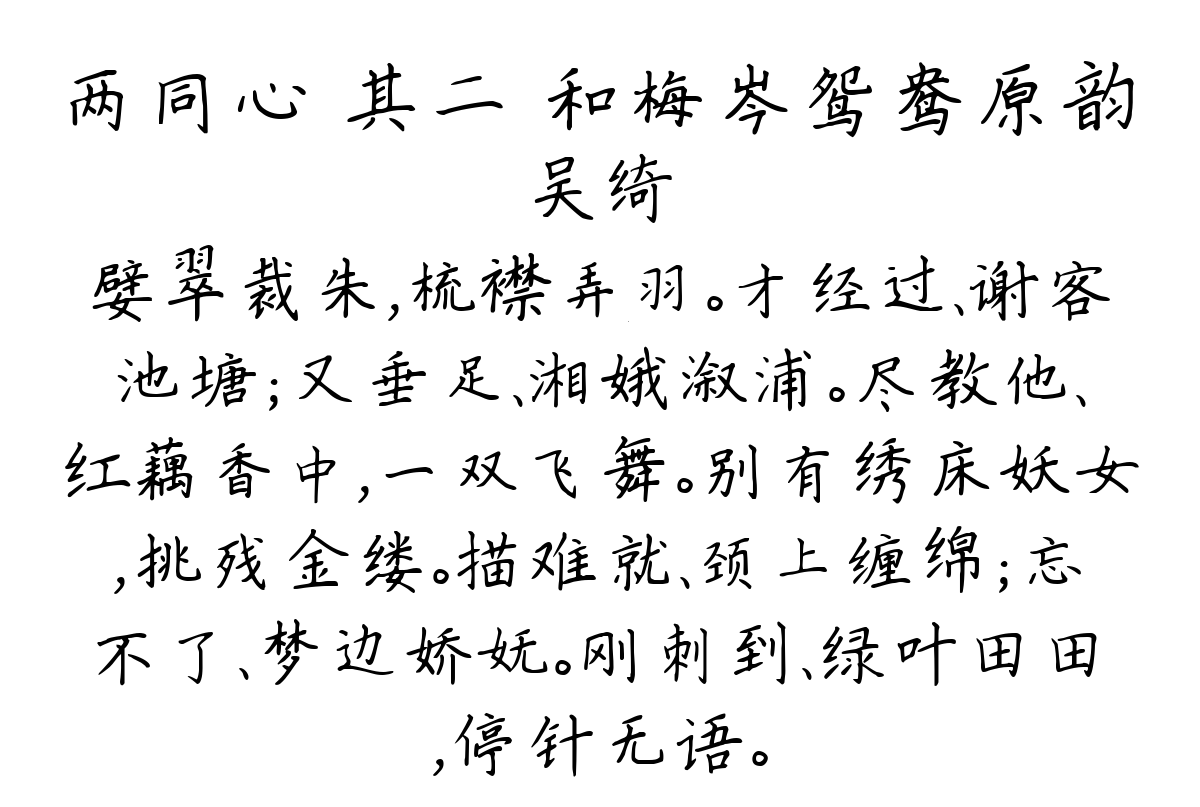 两同心 其二 和梅岑鸳鸯原韵
吴绮
嬖翠裁朱,梳襟弄羽。才经过、谢客
池塘;又垂足、湘娥溆浦。尽教他、
红藕香中,一双飞舞。别有绣床妖女
,挑残金缕。描难就、颈上缠绵;忘
不了、梦边娇妩。刚刺到、绿叶田田
,停针无语。